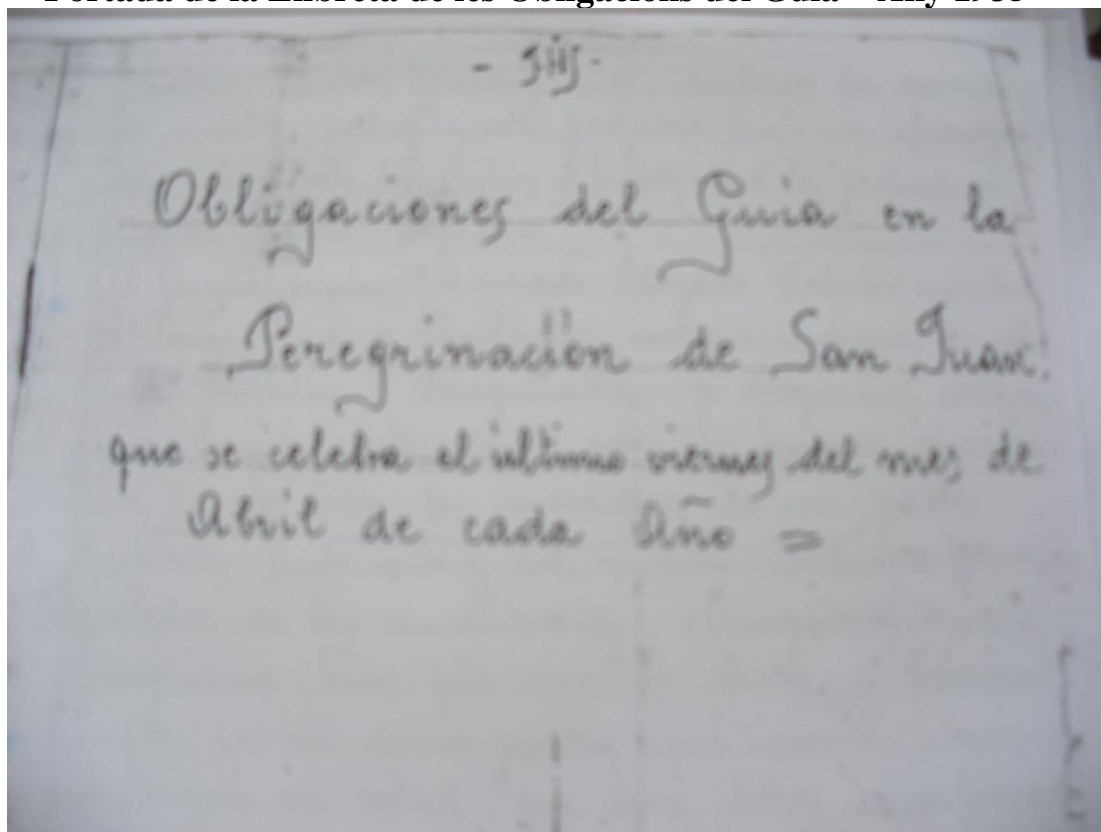 - JHS -
Obligaciones del Guia en la
Peregrinación de San Juan.
que se celebra el ultimo viernes del mes de
Abril de cada Año =